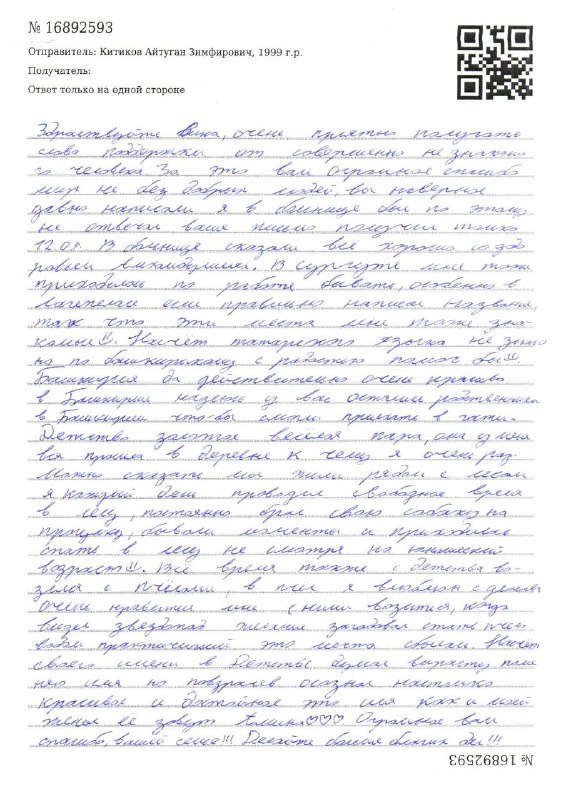 № 16892593
Отправитель: Китиков Айтуган Зимфирович, 1999 г.р.
Получатель:
Ответ только на одной стороне
Здраствуйте Вика, очень приятно получать
слова поддержки от совершенно не знакомо
го человека. За это вам огромное спасибо
мир не без добрых людей, вы наверное
давно написали я в больнице был по этому
не отвечал ваше письмо получил только
12.08. В больнице сказали всё хорошо со здо
ровьем. В сургуте мне тоже
приходилось по работе бывать, особенно в
если правильно написал название,
так что эти места мне тоже зна
комы!!. Насчет татарского языка не знаю
но по башкирскому с радостью помог бы!!
Башкирия да действительно очень красиво
в Башкирии надеюсь у вас остались родственники
в Башкирии что-бы смогли приехать в гости.
Детство золотое весёлая пора, она у меня
вся прошла в деревне к чему я очень рад.
Можно сказать мы жили рядом с лесом
я каждый день проводил свободное время
в лесу, постоянно брал свою собаку на
прогулку, бывали моменты и приходилось
спать в лесу не смотря на юношеский
возраст!!. Всё время также с детства во
зился с пчёлами, в пчёл я влюблен с детства
очень нравится мне с ними возиться, когда
видел звездопад желание загадывал стать пчел
водом практический это мечта сбылась. Насчет
своего имени в детстве думал вырасту поме
няю имя но повзрослев осознал насколько
красивое и достойное это имя как и моей
жены её зовут Алина♡♡♡ Огромное вам
спасибо, вашей семье!!! Делайте больше благих дел!!!
№ 16892593